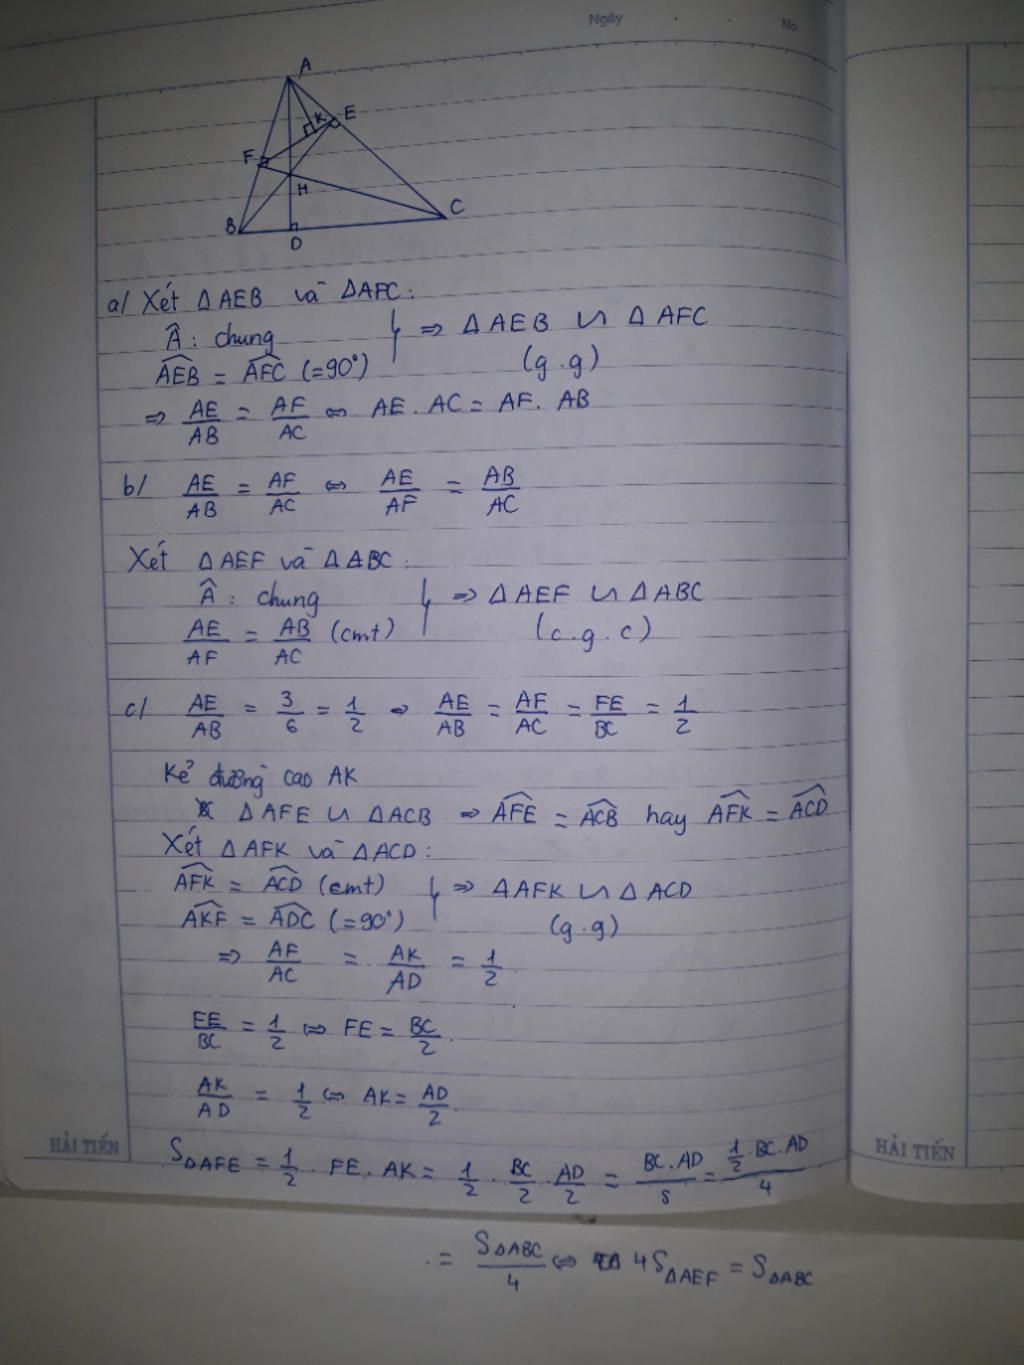 Ngày
No
A
K E
F
H
B
C
D
a/ Xét ΔAEB và ΔAFC:
Â: chung
⇒ ΔAEB ∽ ΔAFC
AEB = AFC (=90°)
(g.g)
⇒ AE/AB = AF/AC ⇔ AE.AC = AF.AB
b/ AE/AB = AF/AC ⇔ AE/AF = AB/AC
Xét ΔAEF và ΔABC:
Â: chung
⇒ ΔAEF ∽ ΔABC
AE/AF = AB/AC (cmt)
(c.g.c)
c/ AE/AB = 3/6 = 1/2 ⇒ AE/AB = AF/AC = FE/BC = 1/2
Kẻ đường cao AK
ΔAFE ∽ ΔACB ⇒ AFE = ACB hay AFK = ACD
Xét ΔAFK và ΔACD:
AFK = ACD (cmt)
⇒ ΔAFK ∽ ΔACD
AKF = ADC (=90°)
(g.g)
⇒ AF/AC = AK/AD = 1/2
FE/BC = 1/2 ⇔ FE = BC/2.
AK/AD = 1/2 ⇔ AK = AD/2.
HẢI TIẾN
SΔAFE = 1/2 . FE.AK = 1/2 . BC/2 . AD/2 = BC.AD/8 = 1/2.BC.AD/4
HẢI TIẾN
= SΔABC/4 ⇔ 4SΔAEF = SΔABC